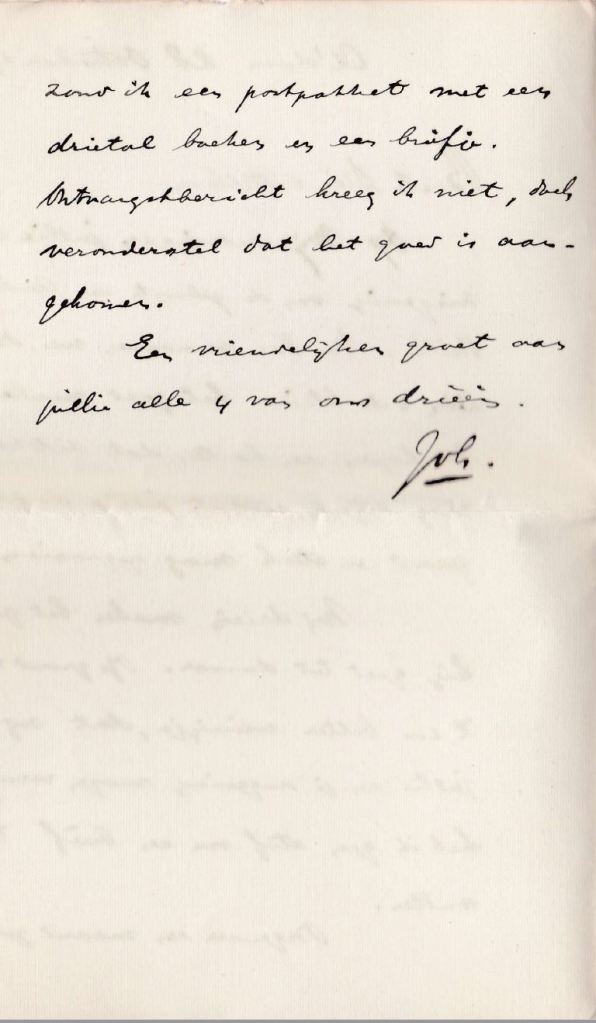 zond ik een postpakket met een
drietal boeken en een briefje.
Ontvangstbericht kreeg ik niet, doch
veronderstel dat het goed is aan-
gekomen.
Een vriendelijken groet aan
jullie alle 4 van ons drieën.
Joh.